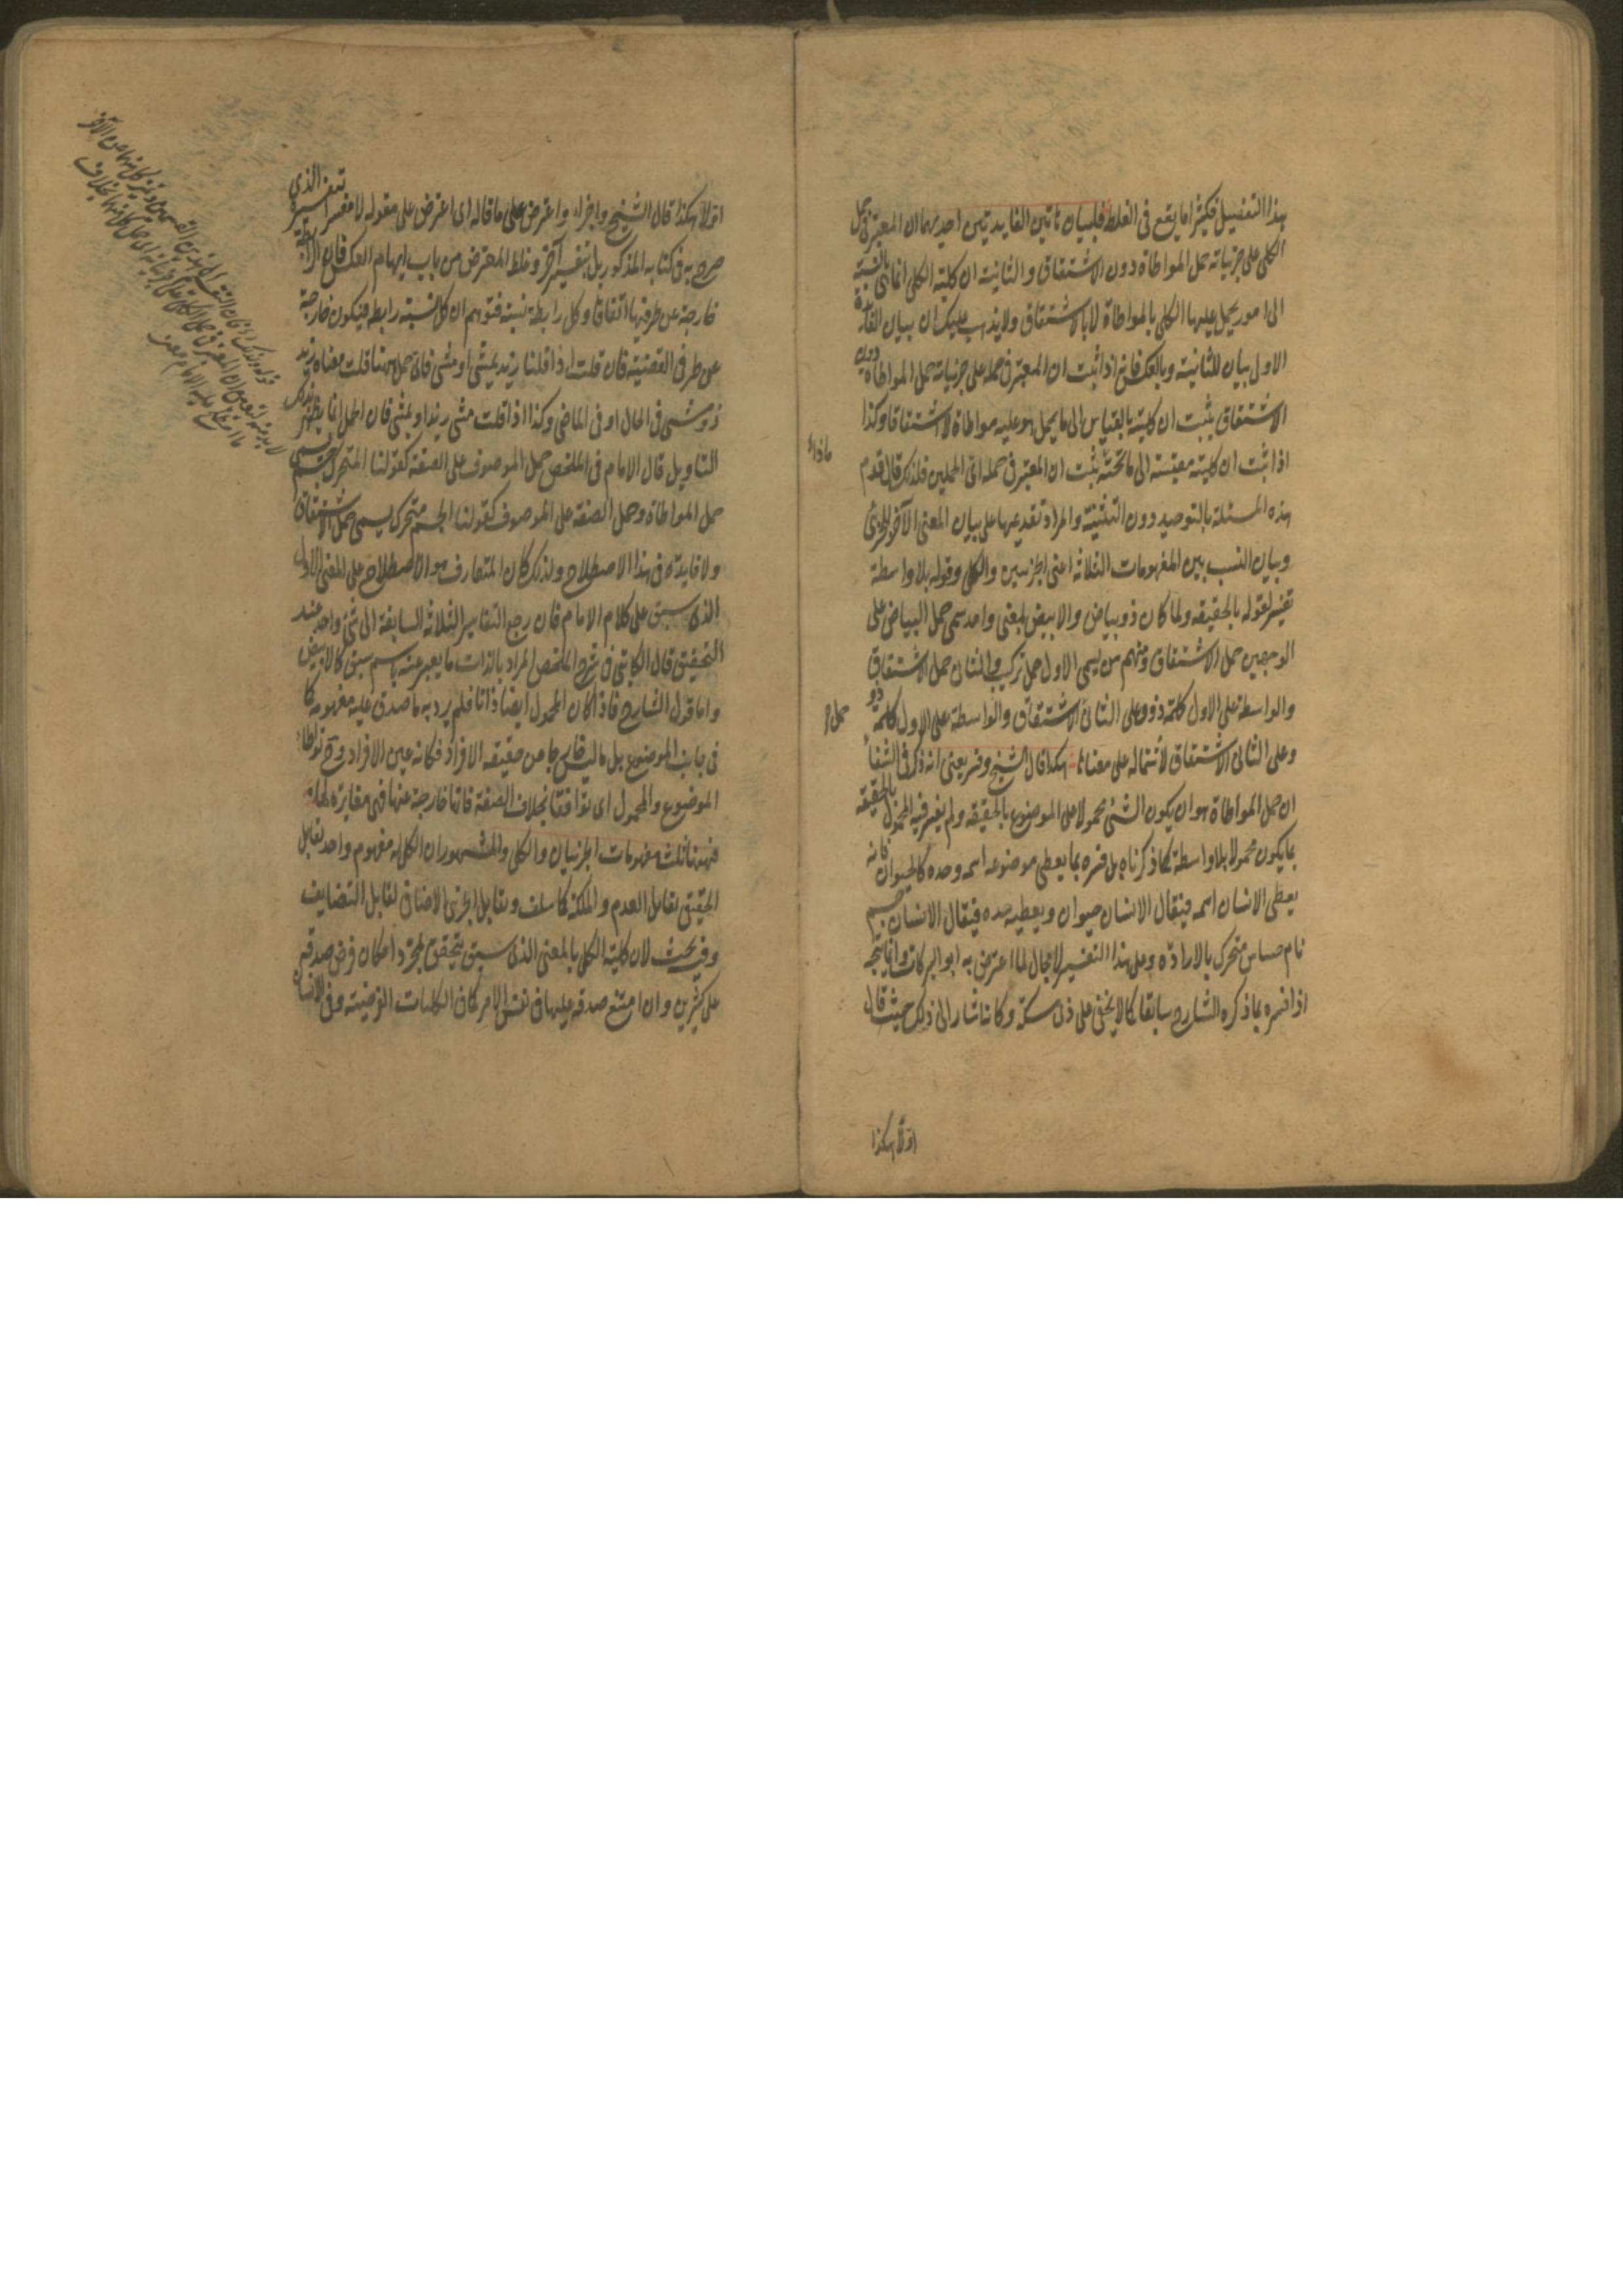 هذا التفصيل فكثيرا ما يقع فى الغلط فلبيان هاتين الفايدتين احديهما ان المعتبر فى حمل
الكلى على جزئياته حمل المواطاة دون الاشتقاق والثانية ان كلية الكلى انما هى بالنسبة
الى امور يحمل عليها الكلى بالمواطاة لا بالاشتقاق ولا يذهب عليك ان بيان الفائدة
الاول بيان للثانية وبالعكس فانه اذا ثبت ان المعتبر فى حمله على جزئياته حمل المواطاة دون
الاشتقاق يثبت ان كليته بالقياس الى ما يحمل هو عليه مواطاة لا اشتقاقا وكذا
اذا ثبت ان كليته مقيسة الى ما تحته يثبت ان المعتبر فى حمله اى الحملين فلذلك قال قدم
هذه المسئلة بالتوحيد دون التثنية والمراد تقديمها على بيان المعنى الآخر للجزئى
وبيان النسب بين المفهومات الثلاثة اعنى الجزئيين والكلى وقوله بلا واسطة
تفسير لقوله بالحقيقة ولما كان ذو بياض والابيض بمعنى واحد سمى حمل البياض على
الوجهين حمل الاشتقاق ومنهم من يسمى الاول حمل تركيب والثانى حمل الاشتقاق
والواسطة على الاول كلمة ذو وعلى الثانى الاشتقاق والواسطة على الاول كلمة ذو
وعلى الثانى الاشتقاق لاشتماله على معناها هكذا قال الشيخ وفسر يعنى انه ذكر فى الشفاء
ان حمل المواطاة هو ان يكون الشئ محمولا على الموضوع بالحقيقة ولم يفسر فيه المحمول بالحقيقة
بما يكون محمولا بلا واسطة كما ذكرناه بل فسره بما يعطى موضوعه اسمه وحده كالحيوان فانه
يعطى الانسان اسمه فيقال الانسان حيوان ويعطيه حده فيقال الانسان جسم
نام حساس متحرك بالارادة وعلى هذا التفسير لا مجال لما اعترض به ابو البركات وانما يتجه
اذا فسره بما ذكره الشارح سابقا كما لا يخفى على ذى مسكة وكانه اشار الى ذلك حيث قال
اولا هكذا
اولا هكذا قال الشيخ واخرا واعترض على ما قاله اى اعترض على مقوله لا مفسرا بتفسيره الذى
صرح به فى كتابه المذكور بل بتفسير آخر وغلط المعترض من باب ايهام العكس فان الرابطة
خارجة عن طرفيها اتفاقا وكل رابطة نسبة فتوهم ان كل نسبة رابطة فيكون خارجة
عن طرفى القضية فان قلت اذا قلنا زيد يمشى او مشى فاى حمل هنا قلت معناه زيد
ذو مشى فى الحال او فى الماضى وكذا اذا قلت مشى زيد او يمشى فان الحمل انما يظهر بذلك
التاويل قال الامام فى الملخص حمل الموصوف على الصفة كقولنا المتحرك جسم يسمى
حمل المواطاة وحمل الصفة على الموصوف كقولنا الجسم متحرك يسمى حمل الاشتقاق
ولا فايدة فى هذا الاصطلاح ولذلك كان المتعارف هو الاصطلاح على المعنى الاول
الذى سبق على كلام الامام فان رجع التفاسير الثلاثة السابقة الى شئ واحد عند
التحقيق قال الكاتبى فى شرح الملخص المراد بالذات ما يعبر عنه باسم سبق كالابيض
واما قول الشارح فاذا كان المحمول ايضا ذاتا فلم يرد به ما صدق عليه مفهومه كما
فى جانب الموضوع بل ما ليس خارجا من حقيقة الافراد فكانه عين الافراد وح تواطاء
الموضوع والمحمول اى توافقا بخلاف الصفة فانها خارجة عنها فهى مغايرة لها
فههنا ثلث مفهومات الجزئيان والكلى والمشهور ان الكلى له مفهوم واحد تقابل
الحقيقى تقابل العدم والملكة كما سلف وتقابل الجزئى الاضافى تقابل التضايف
وفيه بحث لان كلية الكلى بالمعنى الذى سبق يتحقق بمجرد امكان فرض صدقه
على كثيرين وان امتنع صدقه عليها فى نفس الامر كما فى الكليات الفرضية وفى الانسان